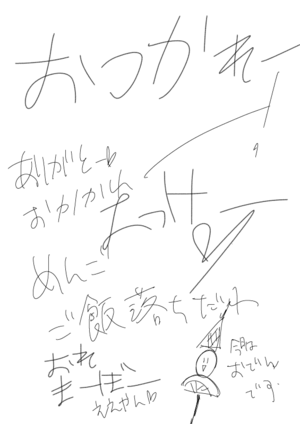 おつかれー
ありがとー
おかんかん
おっけー
めんご
ご飯落ちだれ
おれ
まーぜー
ええやん
今日ね
おでん
です